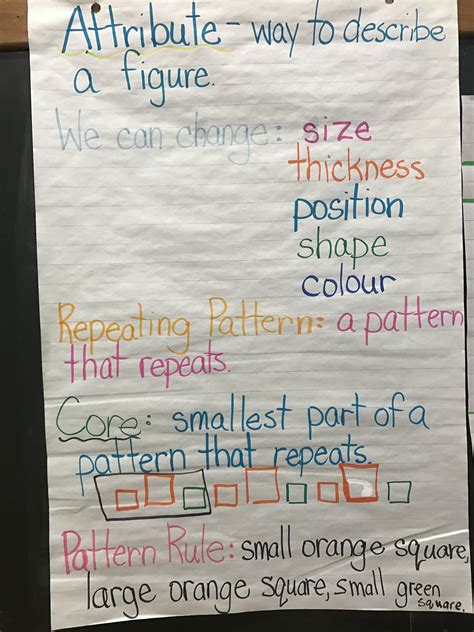 Attribute - way to describe
a figure.
We can change: size
thickness
position
shape
colour
Repeating Pattern: a pattern
that repeats.
Core: smallest part of a
pattern that repeats.
Pattern Rule: small orange square,
large orange square, small green
square.